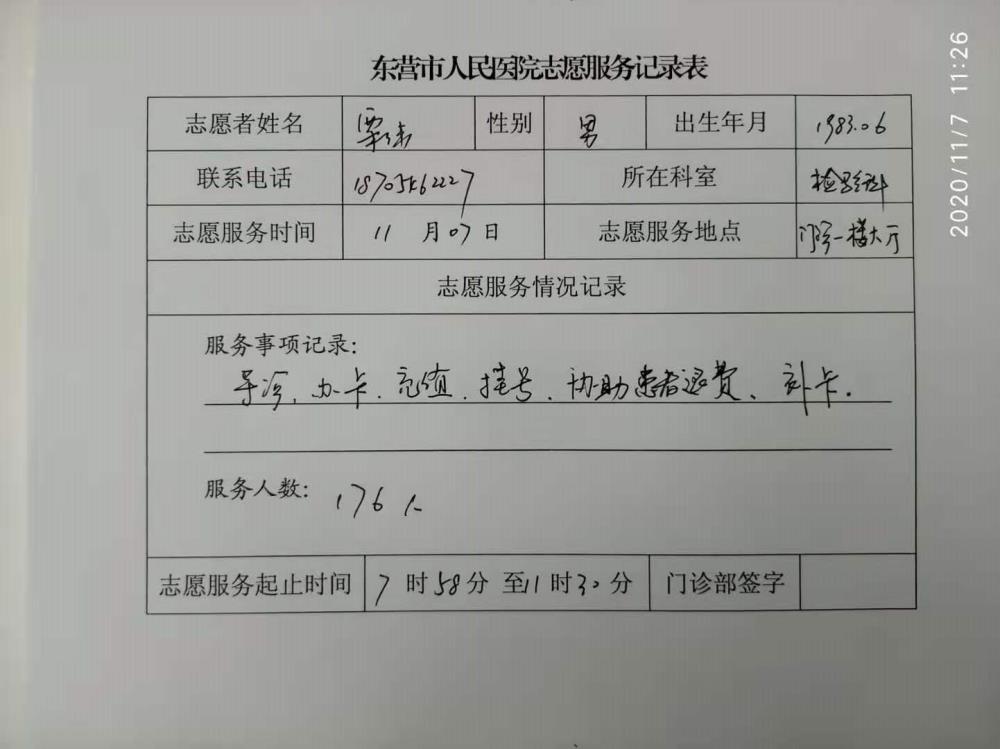 东营市人民医院志愿服务记录表
志愿者姓名 性别 男 出生年月 1983.06
联系电话 18705462227 所在科室
志愿服务时间 11 月 07 日 志愿服务地点 门诊一楼大厅
志愿服务情况记录
服务事项记录:
导诊、办卡、充值、挂号、协助患者退费、补卡.
服务人数: 176人
志愿服务起止时间 7 时 58 分 至 11 时 30 分 门诊部签字
2020/11/7 11:26